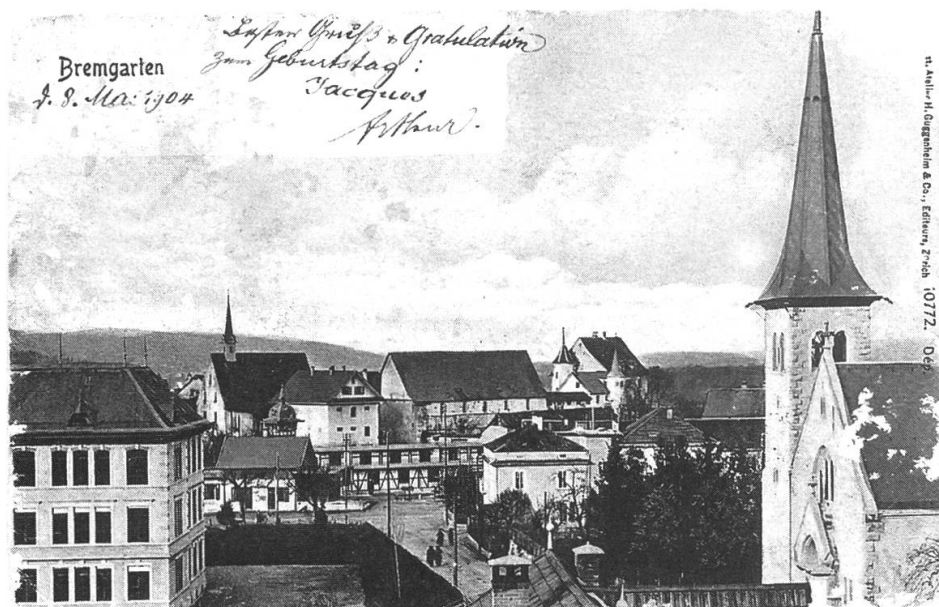 Bremgarten
d. 8. Mai 1904
Bester Gruß & Gratulation
zum Geburtstag:
Jacques
Arthur.
Atelier H. Guggenheim & Co., Editeurs, Zürich 10772. Dép.